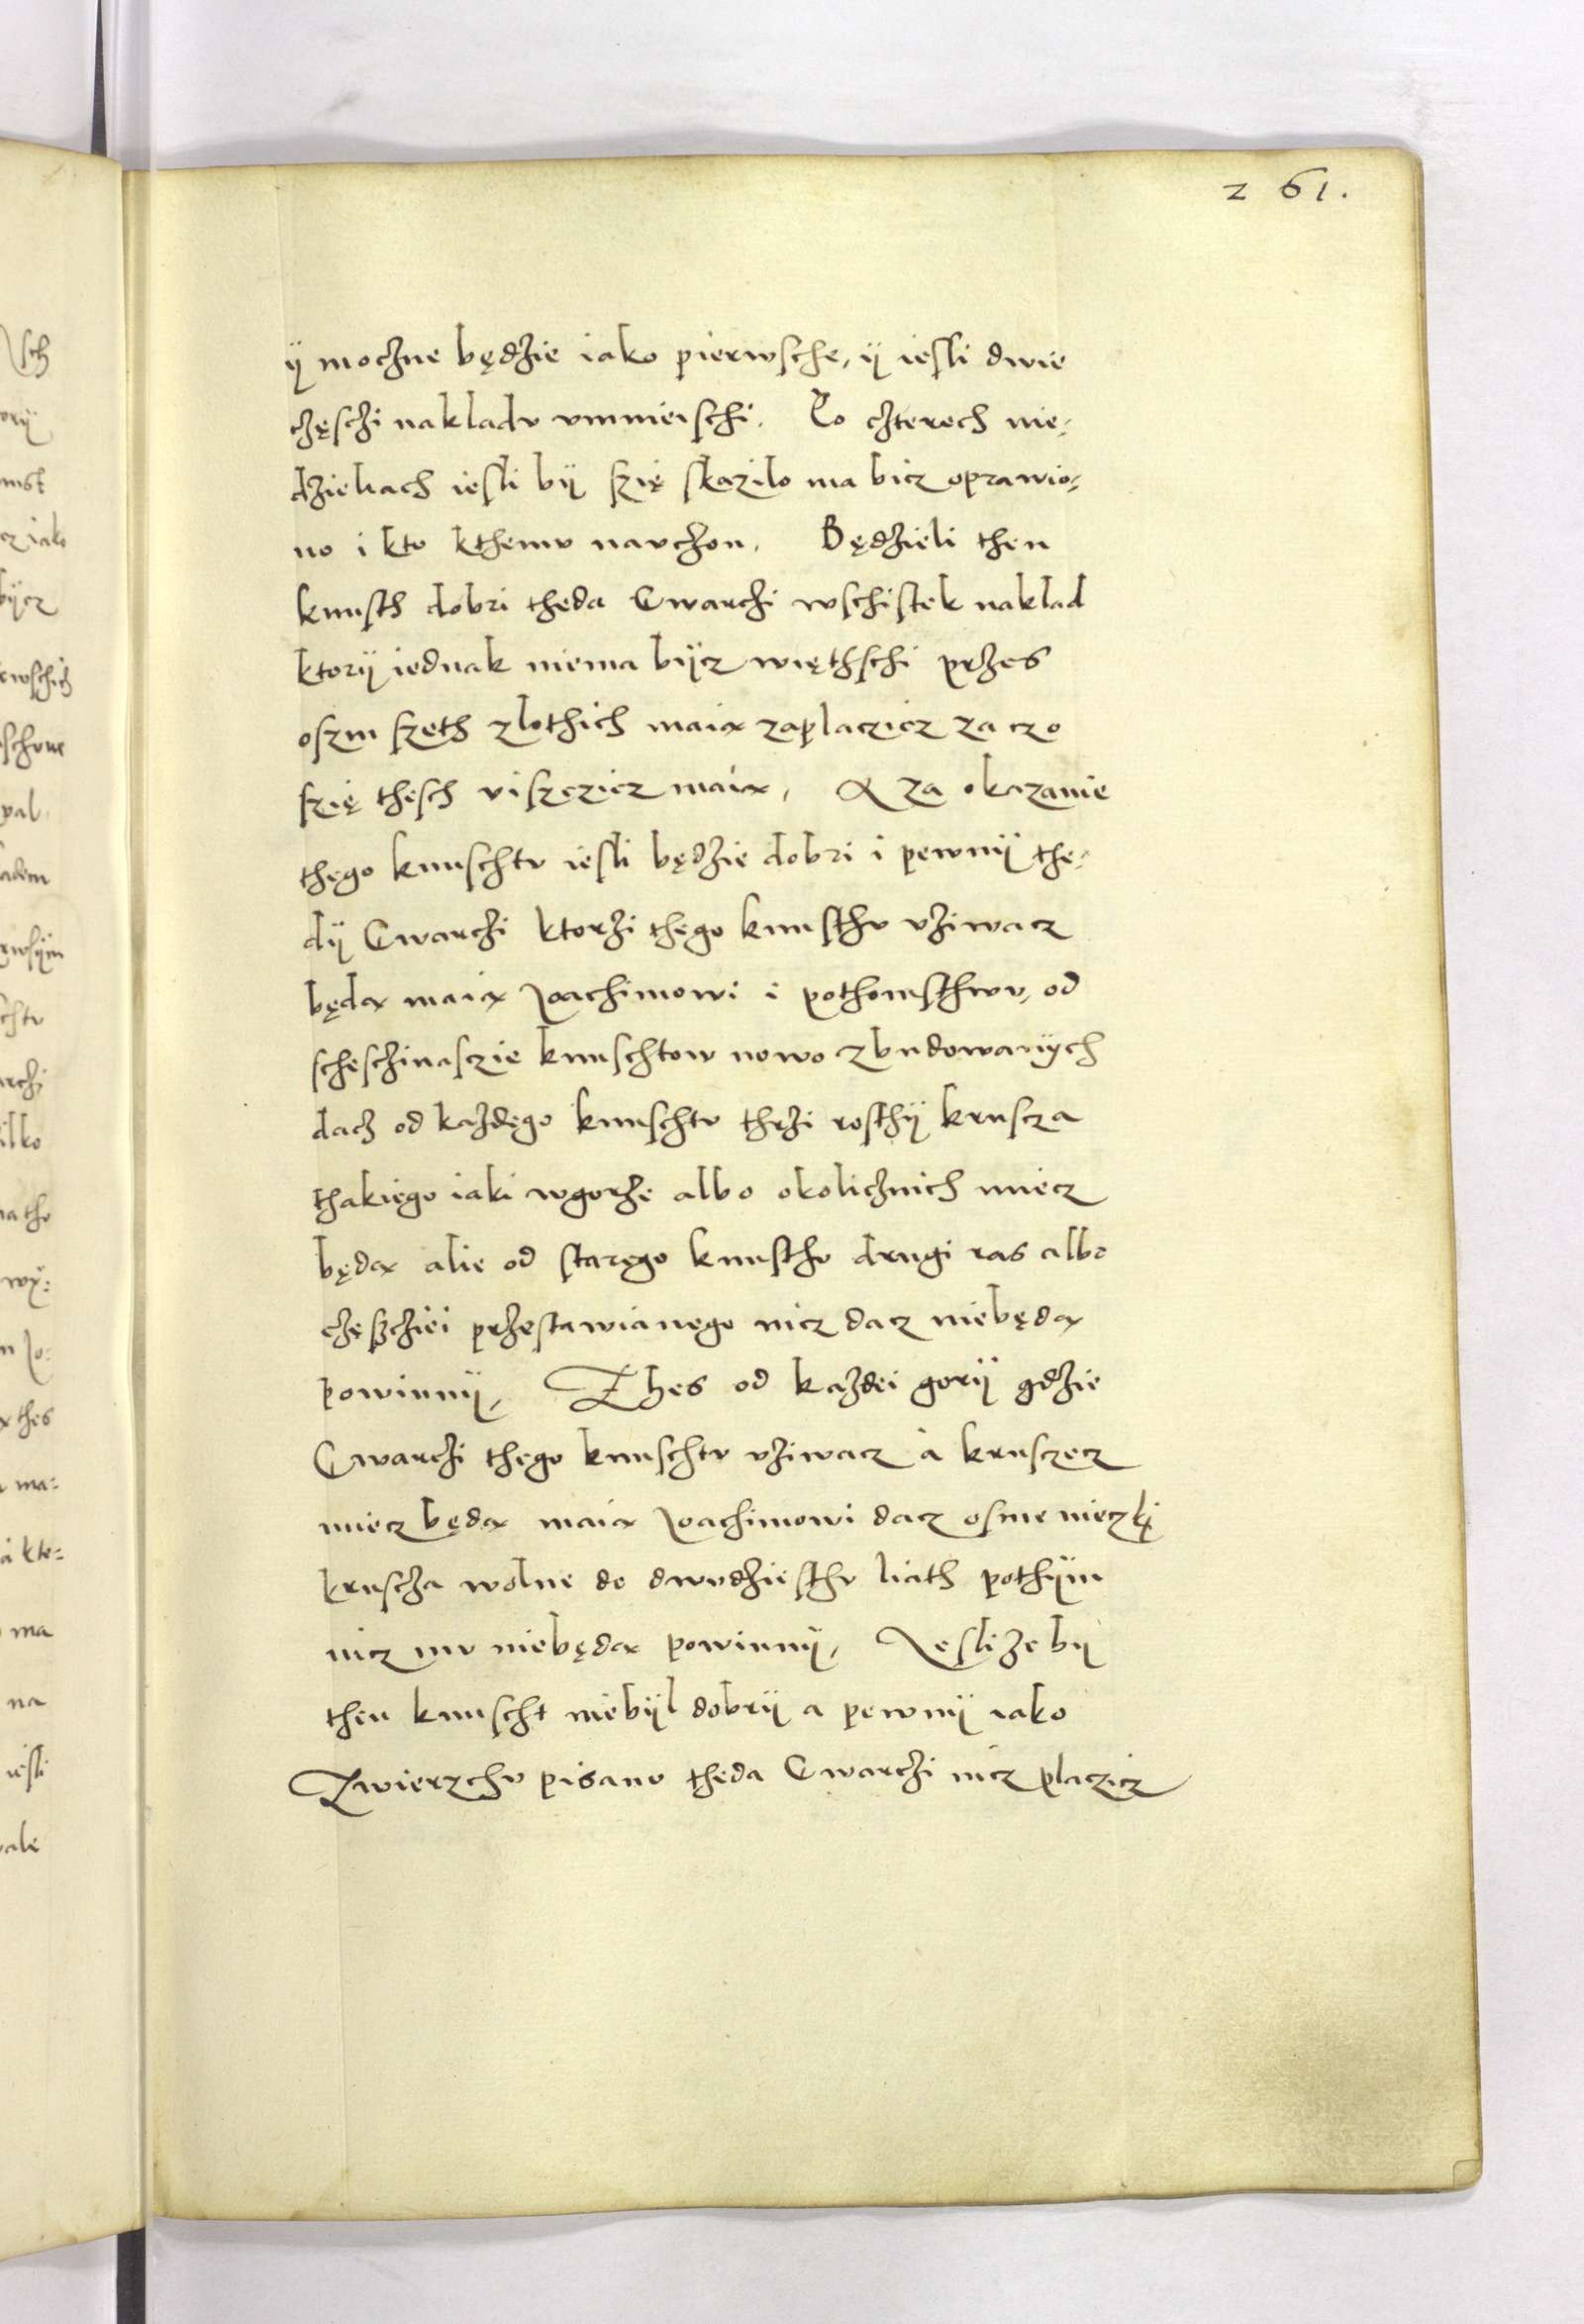 261.
ÿ mochne będzie iako pierwsche, ÿ iesli dwie
chęschi nakladv vmnieischi. Po chterech nie-
dzieliach iesli bÿ szię skazilo ma bicz oprawio-
no i kto kthemv navchon. Będzieli then
kunsth dobri theda Cwarchi wschistek naklad
ktorÿ iednak niema bÿcz więthschi przes
oszm szeth zlothich maia zaplaczicz za czo
szię thesch viszczicz maia, A za okazanie
thego kunschtv iesli będzie dobri i pewnÿ the-
dÿ Cwarchi ktorzi thego kunsthv vziwacz
będa maia Joachimowi i pothomsthwv, od
scheschinasczie kunschtow nowo zbudowanÿch
dach od kazdego kunschtv thrzi rosthÿ kruscza
thakiego iaki wgorze albo okolicznich miecz
będa alie od starego kunsthv drugi ras albo
chęschiei przestawianego nicz dacz niebęda
powinnÿ, Thes od kazdei gorÿ gdzie
Cwarchi thego kunschtv vziwacz a krusczecz
miecz będa maia Joachimowi dacz osme nieczki
kruscha wolne do dwvdziesthv liath pothÿm
nicz mv niebęda powinnÿ, Jeslize bÿ
then kunscht niebÿl dobrÿ a pewnÿ iako
Zwierzchv pisano theda Cwarchi nicz placzicz